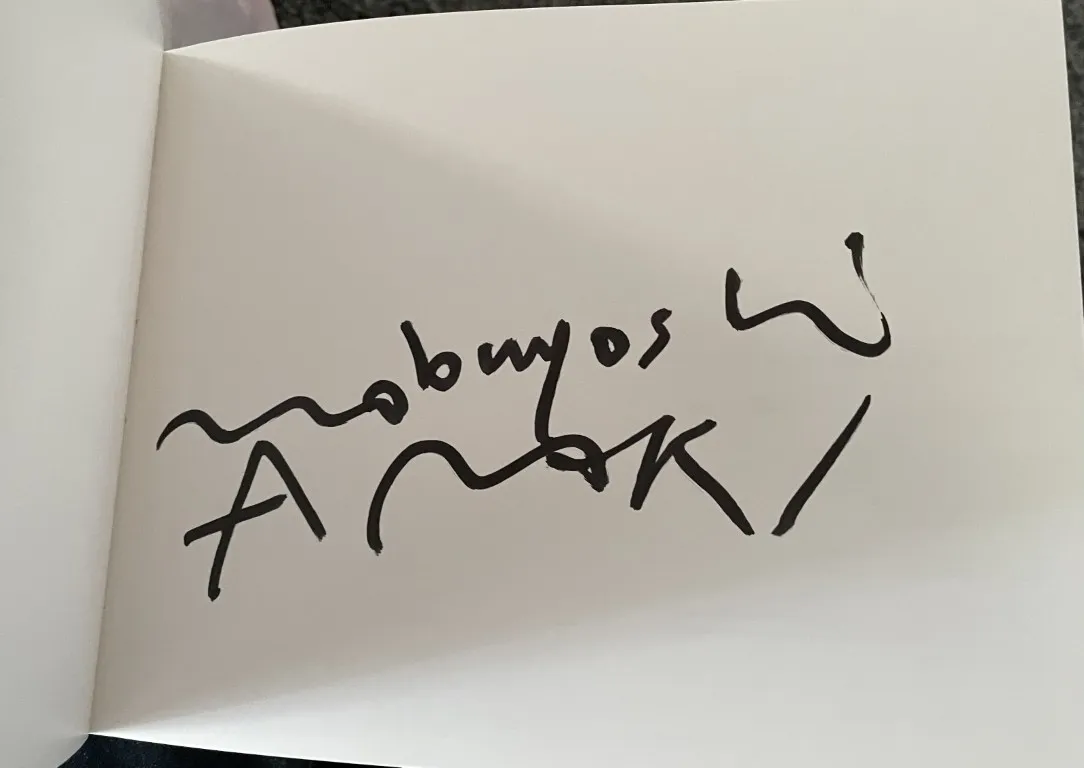 nobuyoshi
ARAKI